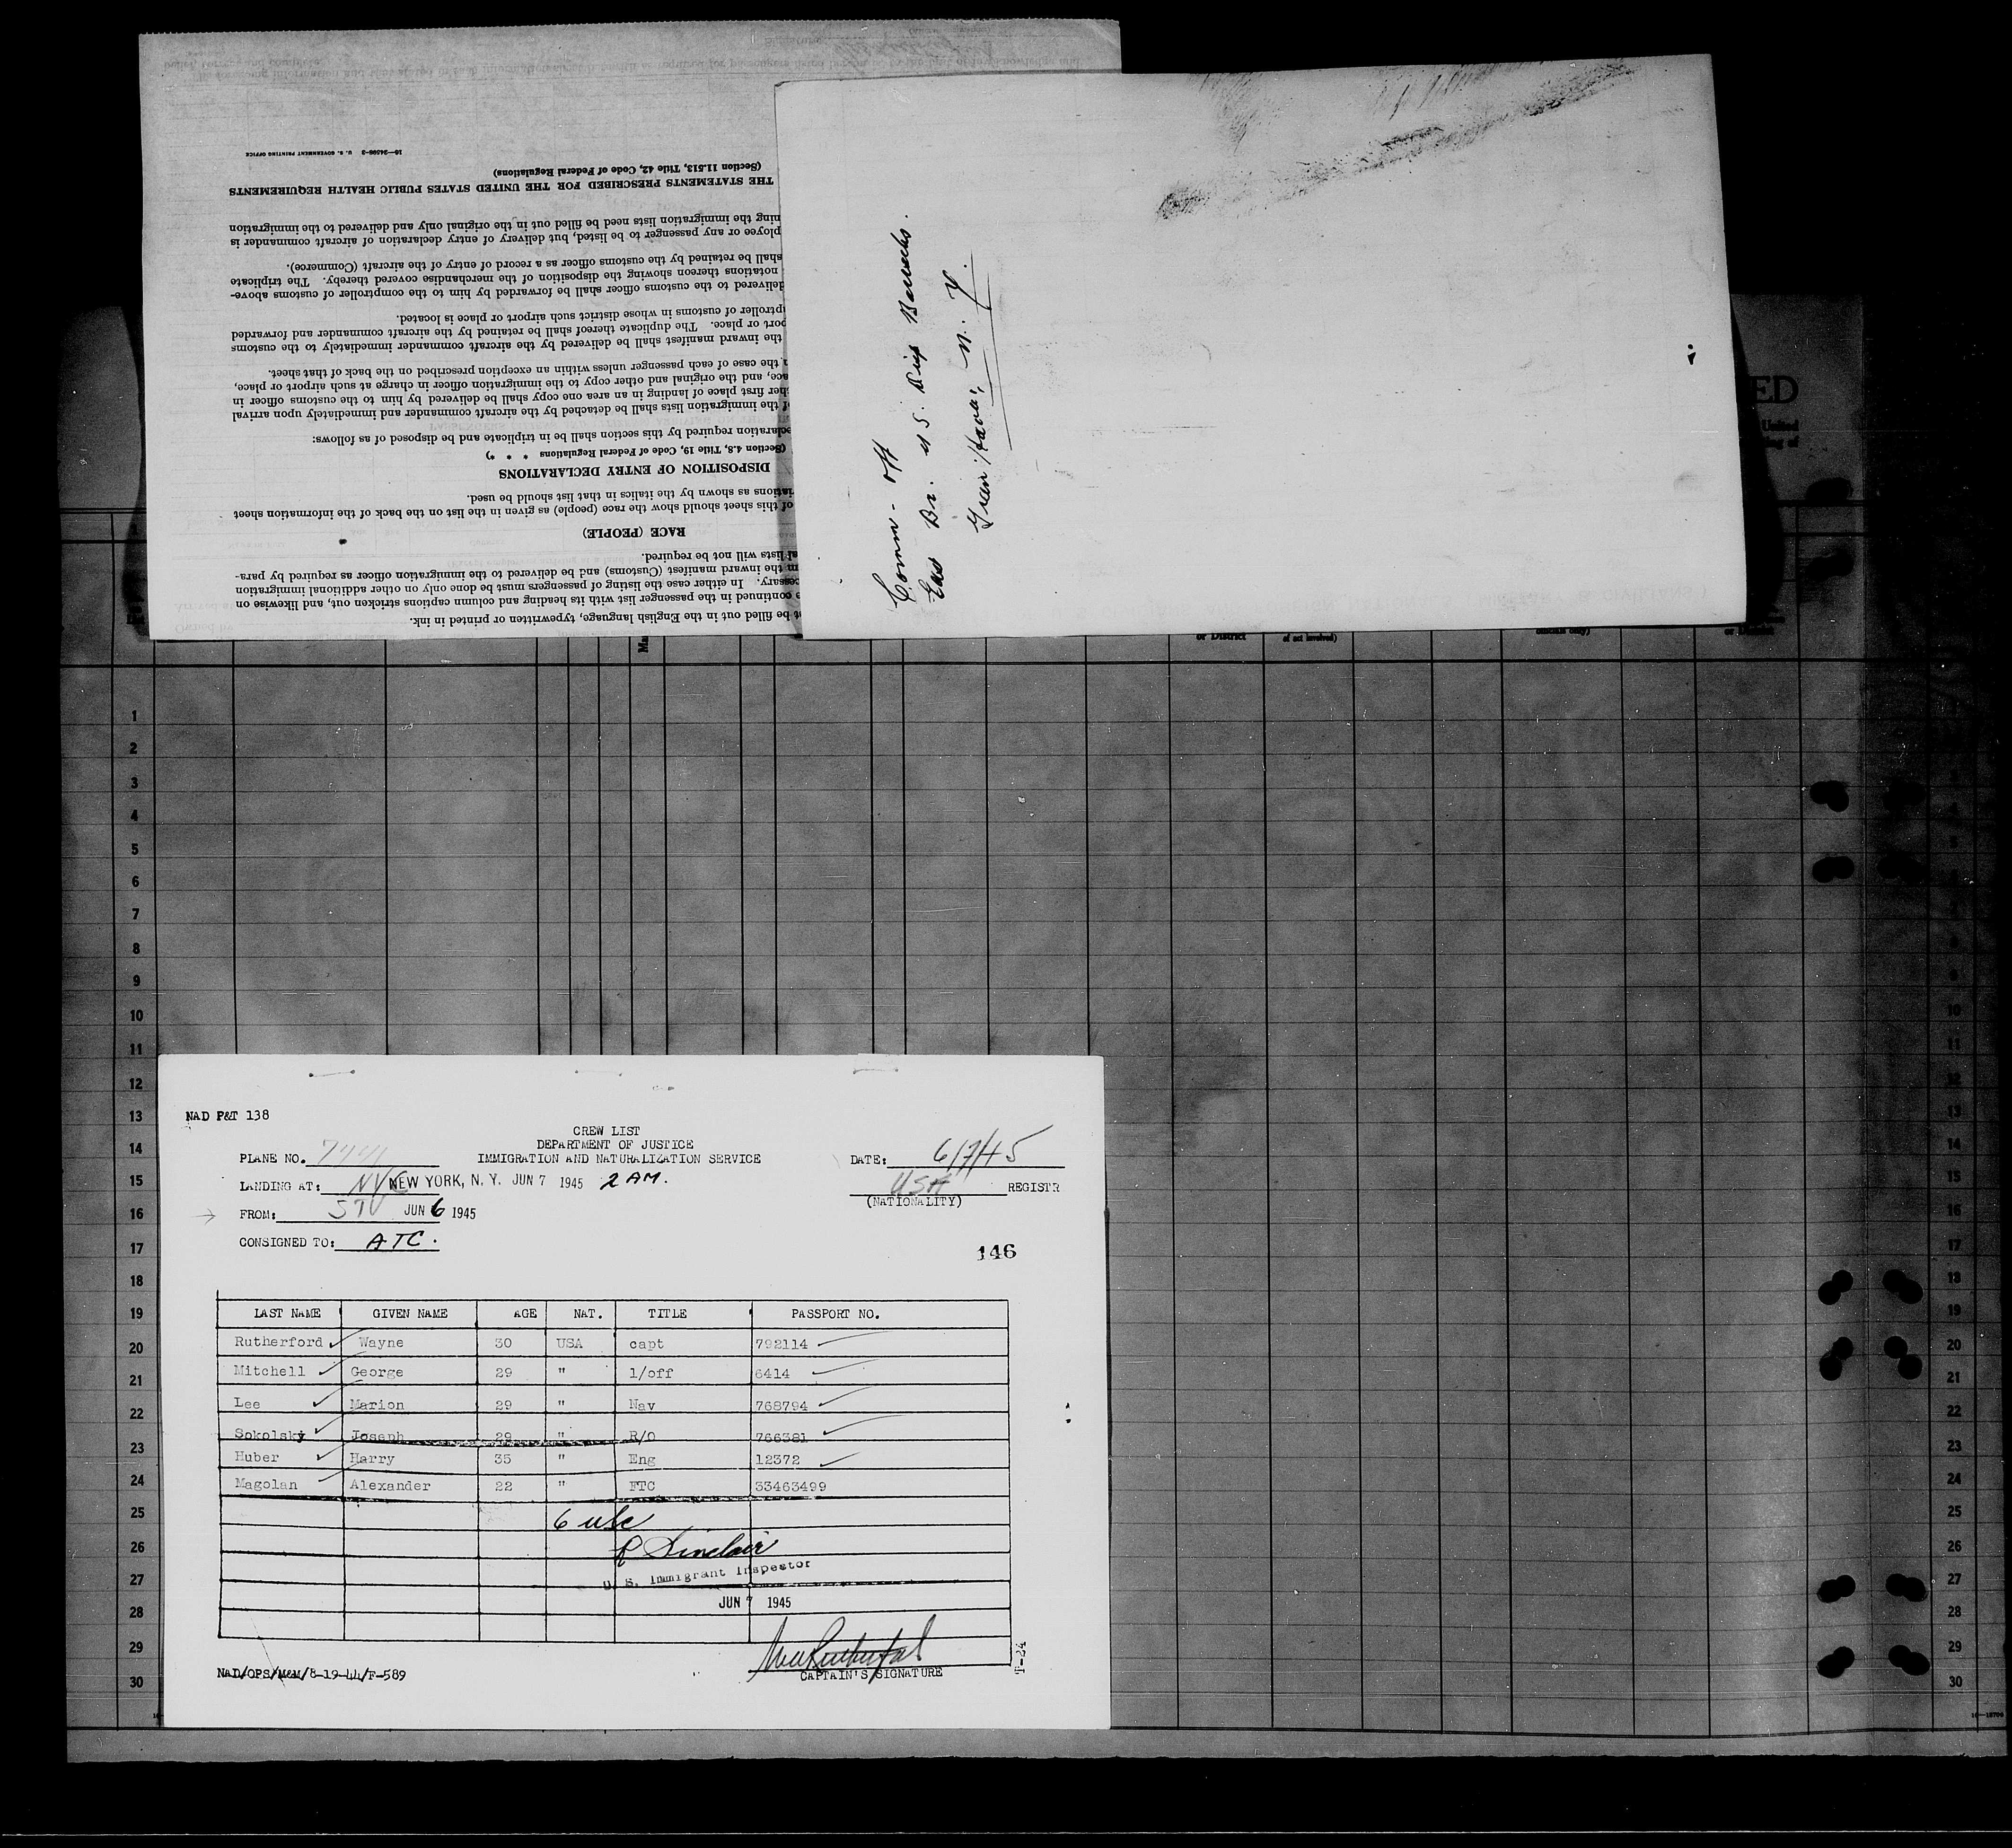 16—24598-2 U. S. GOVERNMENT PRINTING OFFICE
(Section 11.513, Title 42, Code of Federal Regulations)
THE STATEMENTS PRESCRIBED FOR THE UNITED STATES PUBLIC HEALTH REQUIREMENTS
ning the immigration lists need be filled out in the original only and delivered to the immigration
ployee or any passenger to be listed, but delivery of entry declaration of aircraft commander is
shall be retained by the customs officer as a record of entry of the aircraft (Commerce).
notations thereon showing the disposition of the merchandise covered thereby. The triplicate
delivered to the customs officer shall be forwarded by him to the comptroller of customs above-
ptroller of customs in whose district such airport or place is located.
port or place. The duplicate thereof shall be retained by the aircraft commander and forwarded
the inward manifest shall be delivered by the aircraft commander immediately to the customs
the case of each passenger unless within an exception prescribed on the back of that sheet.
ace, and the original and other copy to the immigration officer in charge at such airport or place,
her first place of landing in an area one copy shall be delivered by him to the customs officer in
of the immigration lists shall be detached by the aircraft commander and immediately upon arrival
eclaration required by this section shall be in triplicate and be disposed of as follows:
(Section 4.8, Title 19, Code of Federal Regulations * * *)
DISPOSITION OF ENTRY DECLARATIONS
iations as shown by the italics in that list should be used.
of this sheet should show the race (people) as given in the list on the back of the information sheet
RACE (PEOPLE)
al lists will not be required.
m the inward manifest (Customs) and be delivered to the immigration officer as required by para-
cessary. In either case the listing of passengers must be done only on other additional immigration
e continued in the passenger list with its heading and column captions stricken out, and likewise on
t be filled out in the English language, typewritten or printed in ink.
Comm - off
East Br. U.S. Disp Barracks.
Green Haven, N. Y.
ED
United
ng of
or District
of act involved)
officials only)
1
2
3
4
5
6
7
8
9
10
11
12
13
14
15
16
17
18
19
20
21
22
23
24
25
26
27
28
29
30
NAD P&T 138
CREW LIST
DEPARTMENT OF JUSTICE
IMMIGRATION AND NATURALIZATION SERVICE
PLANE NO.
DATE: 6/7/45
LANDING AT: NYC NEW YORK, N. Y. JUN 7 1945 2 AM.
USA REGISTR
(NATIONALITY)
FROM: STV JUN 6 1945
CONSIGNED TO: ATC.
146
LAST NAME GIVEN NAME AGE NAT. TITLE PASSPORT NO.
Rutherford Wayne 30 USA capt 792114
Mitchell George 29 " 1/off 6414
Lee Marion 29 " Nav 768794
Sokolsky Joseph 29 " R/O 766381
Huber Harry 35 " Eng 12372
Magolan Alexander 22 " FTC 33463499
6 USC
R Sinclair
U. S. Immigrant Inspector
JUN 7 1945
CAPTAIN'S SIGNATURE
NAD/OPS/M&M/8-19-44/F-589
T-24